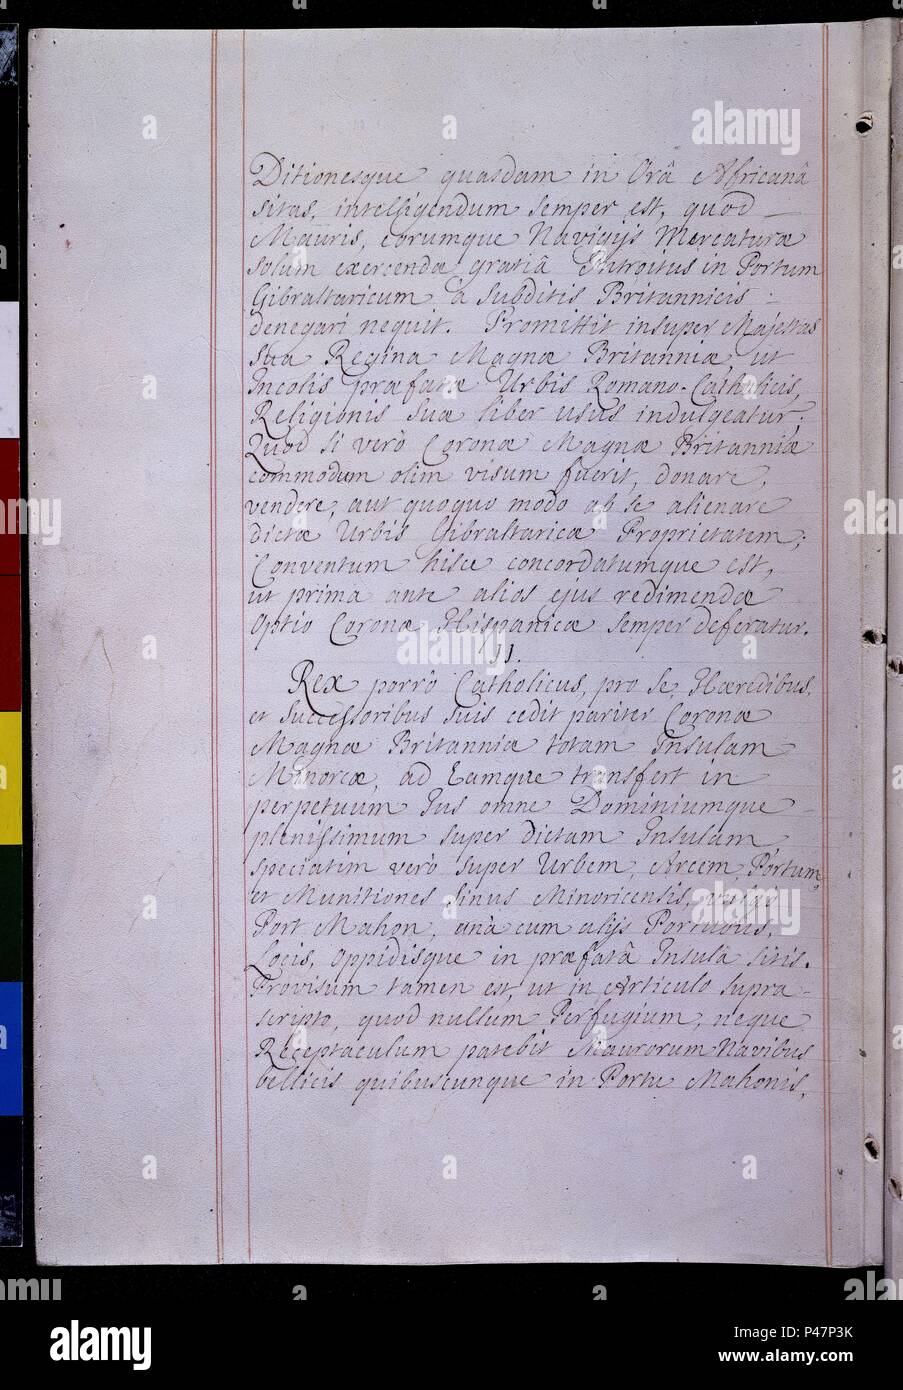 Ditionesque quasdam in Orâ Africanâ
sitas, intelligendum semper est, quod
Mauris, eorumque Navigijs Mercaturæ
solum exercendæ gratiâ Introitus in Portum
Gibraltaricum à Subditis Britannicis
denegari nequit. Promittit insuper Majestas
Sua Regina Magnæ Britanniæ ut
Incolis præfatæ Urbis Romano-Catholicis,
Religionis Suæ liber usus indulgeatur;
Quod si verò Coronæ Magnæ Britanniæ
commodum olim visum fuerit, donare,
vendere, aut quoquo modo ab se alienare
dictæ Urbis Gibraltaricæ Proprietatem;
Conventum hisce concordatumque est,
ut prima ante alios ejus redimendæ
Optio Coronæ Hispanicæ semper deferatur.
11.
Rex porrò Catholicus, pro se, Hæredibus,
et Successoribus suis cedit pariter Coronæ
Magnæ Britanniæ totam Insulam
Minorcæ, ad Eamque transfert in
perpetuum Jus omne Dominiumque
plenissimum super dictam Insulam,
speciatim verò super Urbem, Arcem, Portum,
et Munitiones Sinus Minoricensis, vulgò
Port Mahon, unà cum alijs Portubus,
Locis, Oppidisque in præfatâ Insulâ sitis.
Provisum tamen est, ut in Articulo supra-
scripto, quod nullum Perfugium, neque
Receptaculum patebit Maurorum Navibus
bellicis quibuscunque in Portu Mahonis,
alamy
alamy stock photo
alamy
Image ID: P47P3K
www.alamy.com